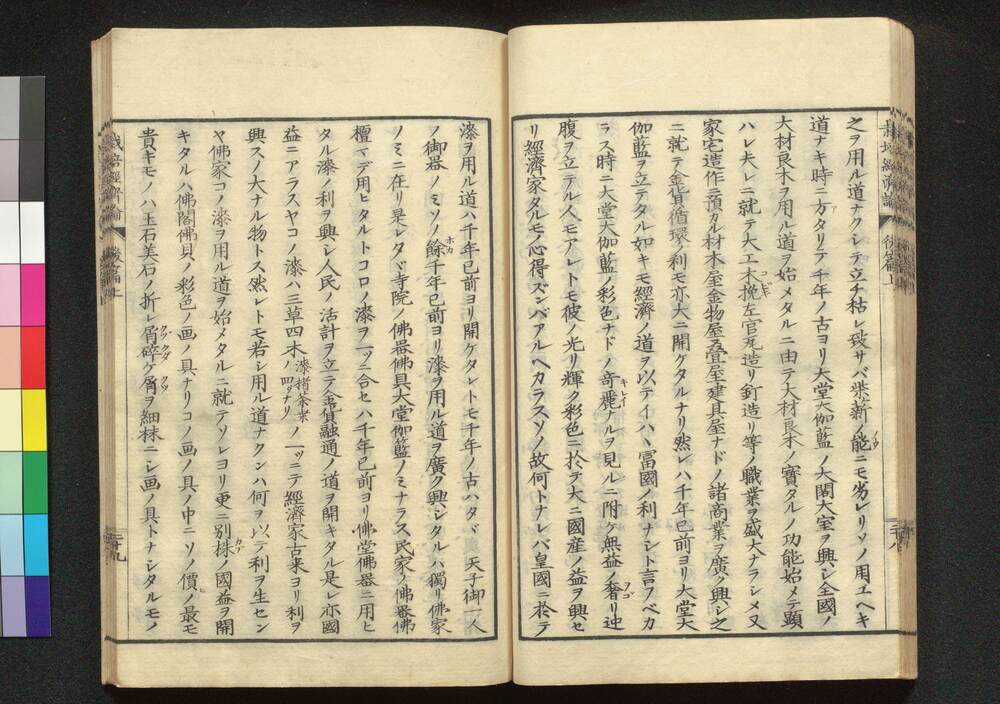 之ヲ用ル道ナクシテ立チ枯レ殘サバ柴薪ノ能ニモ劣レリソノ用エヘキ
道ナキ時ニ方タリテ千年ノ古ヨリ大堂大伽藍ノ大閣大室ヲ興シ全國ノ
大材良木ヲ用ル道ヲ始メタルニ由テ大材良木ノ寳タルノ功能始メテ顕
ハレ夫レニ就テ大工木挽左官瓦造リ釘造リ等ノ職業ヲ盛大ナラシメ又
家宅造作ニ預カル材木屋金物屋疊屋建具屋ナドノ諸商業ヲ廣ク興シ之
ニ就テ金貨循環ノ利モ亦大ニ開ケタルナリ然レハ千年已前ヨリ大堂大
伽藍ヲ立テタル如キモ經濟ノ道ヲ以テイハヽ冨國ノ利ナシト言フベカ
ラス時ニ大堂大伽藍ノ彩色ナドノ竒麗ナルヲ見ルニ附ケ無益ノ奢リ迚
腹ヲ立テル人モアレトモ彼ノ光リ輝ク彩色ニ於テ大ニ國産ノ益ヲ興セ
リ經濟家タルモノ心得ズンバアルヘカラスソノ故何トナレバ皇國ニ於テ
後篇上
漆ヲ用ル道ハ千年已前ヨリ開ケタレトモ千年ノ古ハタヾ 天子御一人
ノ御器ノミソノ餘千年已前ヨリ漆ヲ用ル道ヲ廣ク興シタルハ獨リ佛家
ノミニ在リ是レタヾ寺院ノ佛器佛具大堂伽籃ノミナラス民家ノ佛器佛
檀マデ用ヒタルトコロノ漆ヲ一ッニ合セハ千年已前ヨリ佛堂佛器ニ用ヒ
タル漆ノ利ヲ興シ人民ノ活計ヲ立テ金貨融通ノ道ヲ開キタル是レ亦國
益ニアラスヤコノ漆ハ三草四木漆楮茶桑ノ四ナリノ一ッニテ經濟家古来ヨリ利ヲ
興スノ大ナル物トス然レトモ若シ用ル道ナクンハ何ヲ以テ利ヲ生セン
ヤ佛家コノ漆ヲ用ル道ヲ始メタルニ就テソレヨリ更ニ別株ノ國益ヲ開
キタルハ佛閣佛具ノ彩色ノ画ノ具ナリコノ画ノ具ノ中ニソノ價ノ最モ
貴キモノハ玉石美石ノ折レ屑碎ケ屑ヲ細抹ニシ画ノ具トナシタルモノ
栽培經濟論
後篇上
二十九